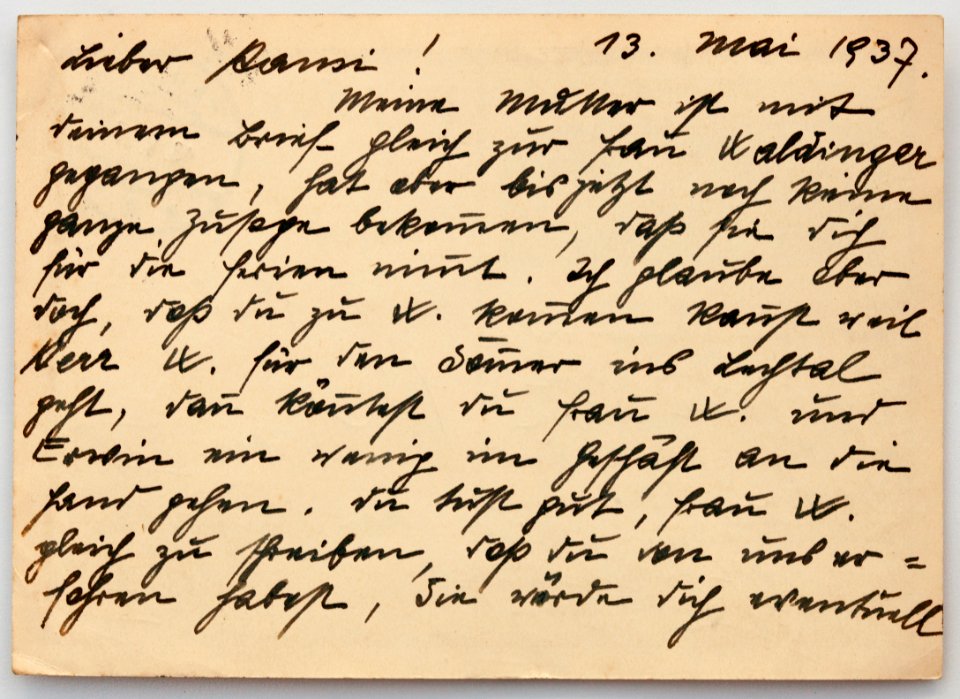 Lieber Hansi! 13. Mai 1937.
Meine Mutter ist mit
deinem Brief gleich zur Frau Waldinger
gegangen, hat aber bis jetzt noch keine
ganze Zusage bekom̅en, daß sie dich
für die Ferien nim̅t. Ich glaube aber
doch, daß du zu W. kom̅en kan̅st weil
Herr W. für den Som̅er ins Lechtal
geht, dan̅ kön̅test du Frau W. und
Erwin ein wenig im Geschäft an die
Hand gehen. Du tust gut, Frau W.
gleich zu schreiben, daß du von uns er=
fahren habest, Sie würde dich eventuell